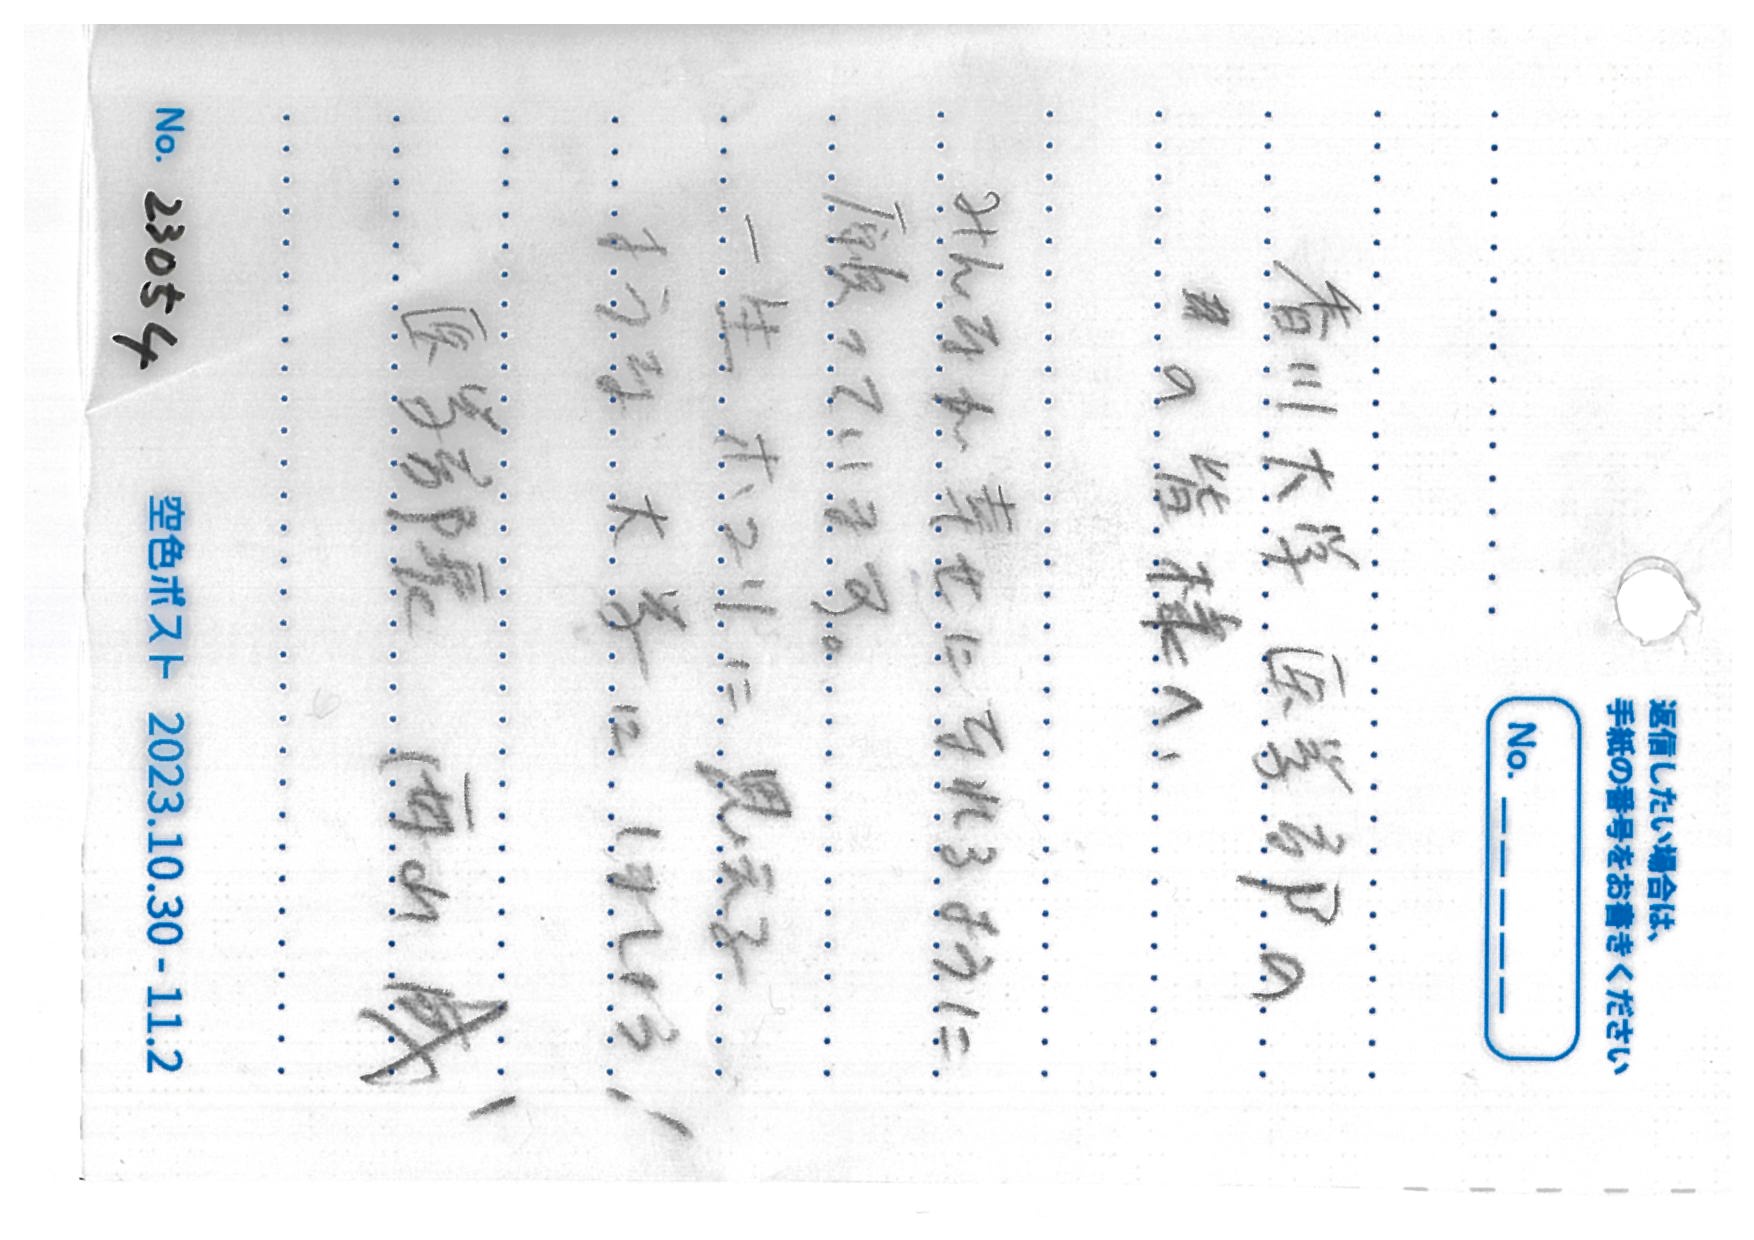 返信したい場合は、
手紙の番号をお書きください
No.
香川大学 医学部の
の皆様へ、
みんなが幸せになれるように
願っています。
一生ホコリに思える
ような大学にしましょう!
医学部長 西山 成
No. 23054
空色ポスト 2023.10.30 - 11.2